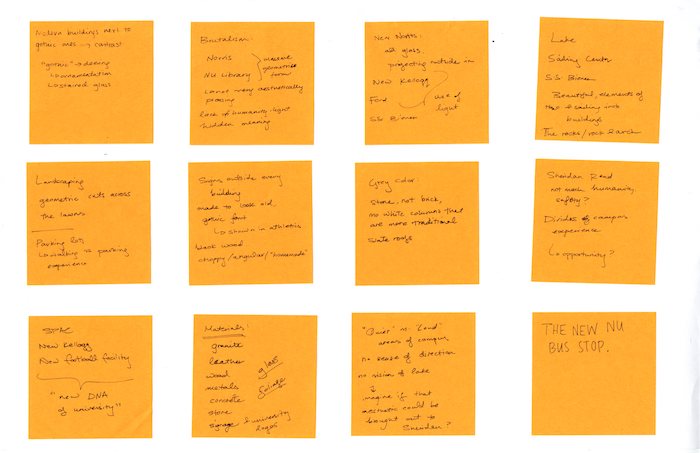 Modern buildings next to
gothic ones → contrast
"gothic" → defining
↳ ornamentation
↳ stained glass
Brutalism:
Norris
NU Library
massive
geometric
form
↳ not very aesthetically
pleasing
lack of humanity, light
hidden meaning
New Norris:
all glass,
projecting outside in
New Kellogg
Ford
SS Bienen
use of
light
Lake
Sailing Center
SS Bienen
Beautiful, elements of
H2O & sailing in
buildings
The rocks/rock beach
Landscaping
geometric cuts across
the lawns
Parking lots
↳ walking vs parking
experience
Signs outside every
building
made to look old
gothic font
↳ shown in athletics
black wood
choppy/angular/"homemade"
Grey color:
stone, not brick,
no white columns that
are more traditional
slate roofs
Sheridan Road
not much humanity,
safety?
Divides of campus
experience
↳ opportunity?
SPAC
New Kellogg
New football facility
"new DNA
of university"
Materials:
granite
leather
wood
metals
concrete
stone
signage & university
logos
glass
foliage
"Quiet" vs. "Loud"
areas of campus
no sense of direction
no vision of lake
↓
imagine if that
aesthetic could be
brought out to
Sheridan?
THE NEW NU
BUS STOP.